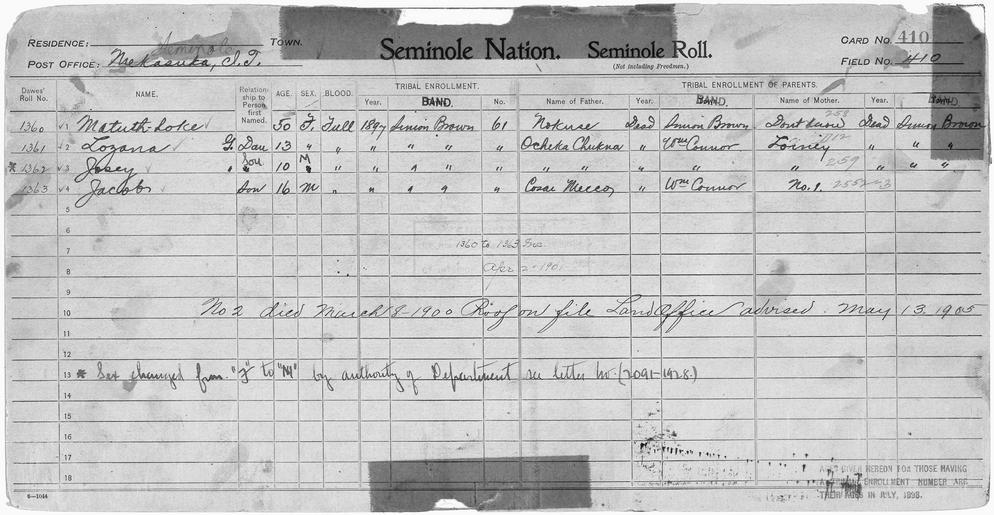 RESIDENCE: Seminole TOWN.
POST OFFICE: Mekasuka, I.T.
Seminole Nation. Seminole Roll.
(Not including Freedmen.)
CARD NO. 410
FIELD NO. 410
Dawes' Roll No. NAME. Relationship to Person first Named. AGE. SEX. BLOOD. TRIBAL ENROLLMENT. TRIBAL ENROLLMENT OF PARENTS.
Year. BAND. No. Name of Father. Year. BAND. Name of Mother. Year.
1360 √1 Matuth-hoke 30 F. Full 1897 Simion Brown 61 Nokuse Dead Simion Brown Dont know Dead Simion Brown
1361 √2 Lozana G. Dau 13 " " " " " " Ocheka Chukna " Wm Connor Loiney " " "
* 1362 √3 Josey " Son 10 M " " " " " " " " " 259 " " "
1363 √4 Jacob Son 16 M " " " " " Cosar Mecco " Wm Connor No. 1.
5
6
7 1360 to 1363 Inc.
8 Apr 2-1901
9
10 No 2 died March 8-1900 Proof on file Land Office advised. May 13, 1905
11
12
13 * Sex changed from "F" to "M" by authority of Department see letter No. (2091-1928.)
14
15
16
17
18
6-1044
AGES GIVEN HEREON FOR THOSE HAVING
ENROLLMENT NUMBER ARE
THEIR AGES IN JULY, 1898.